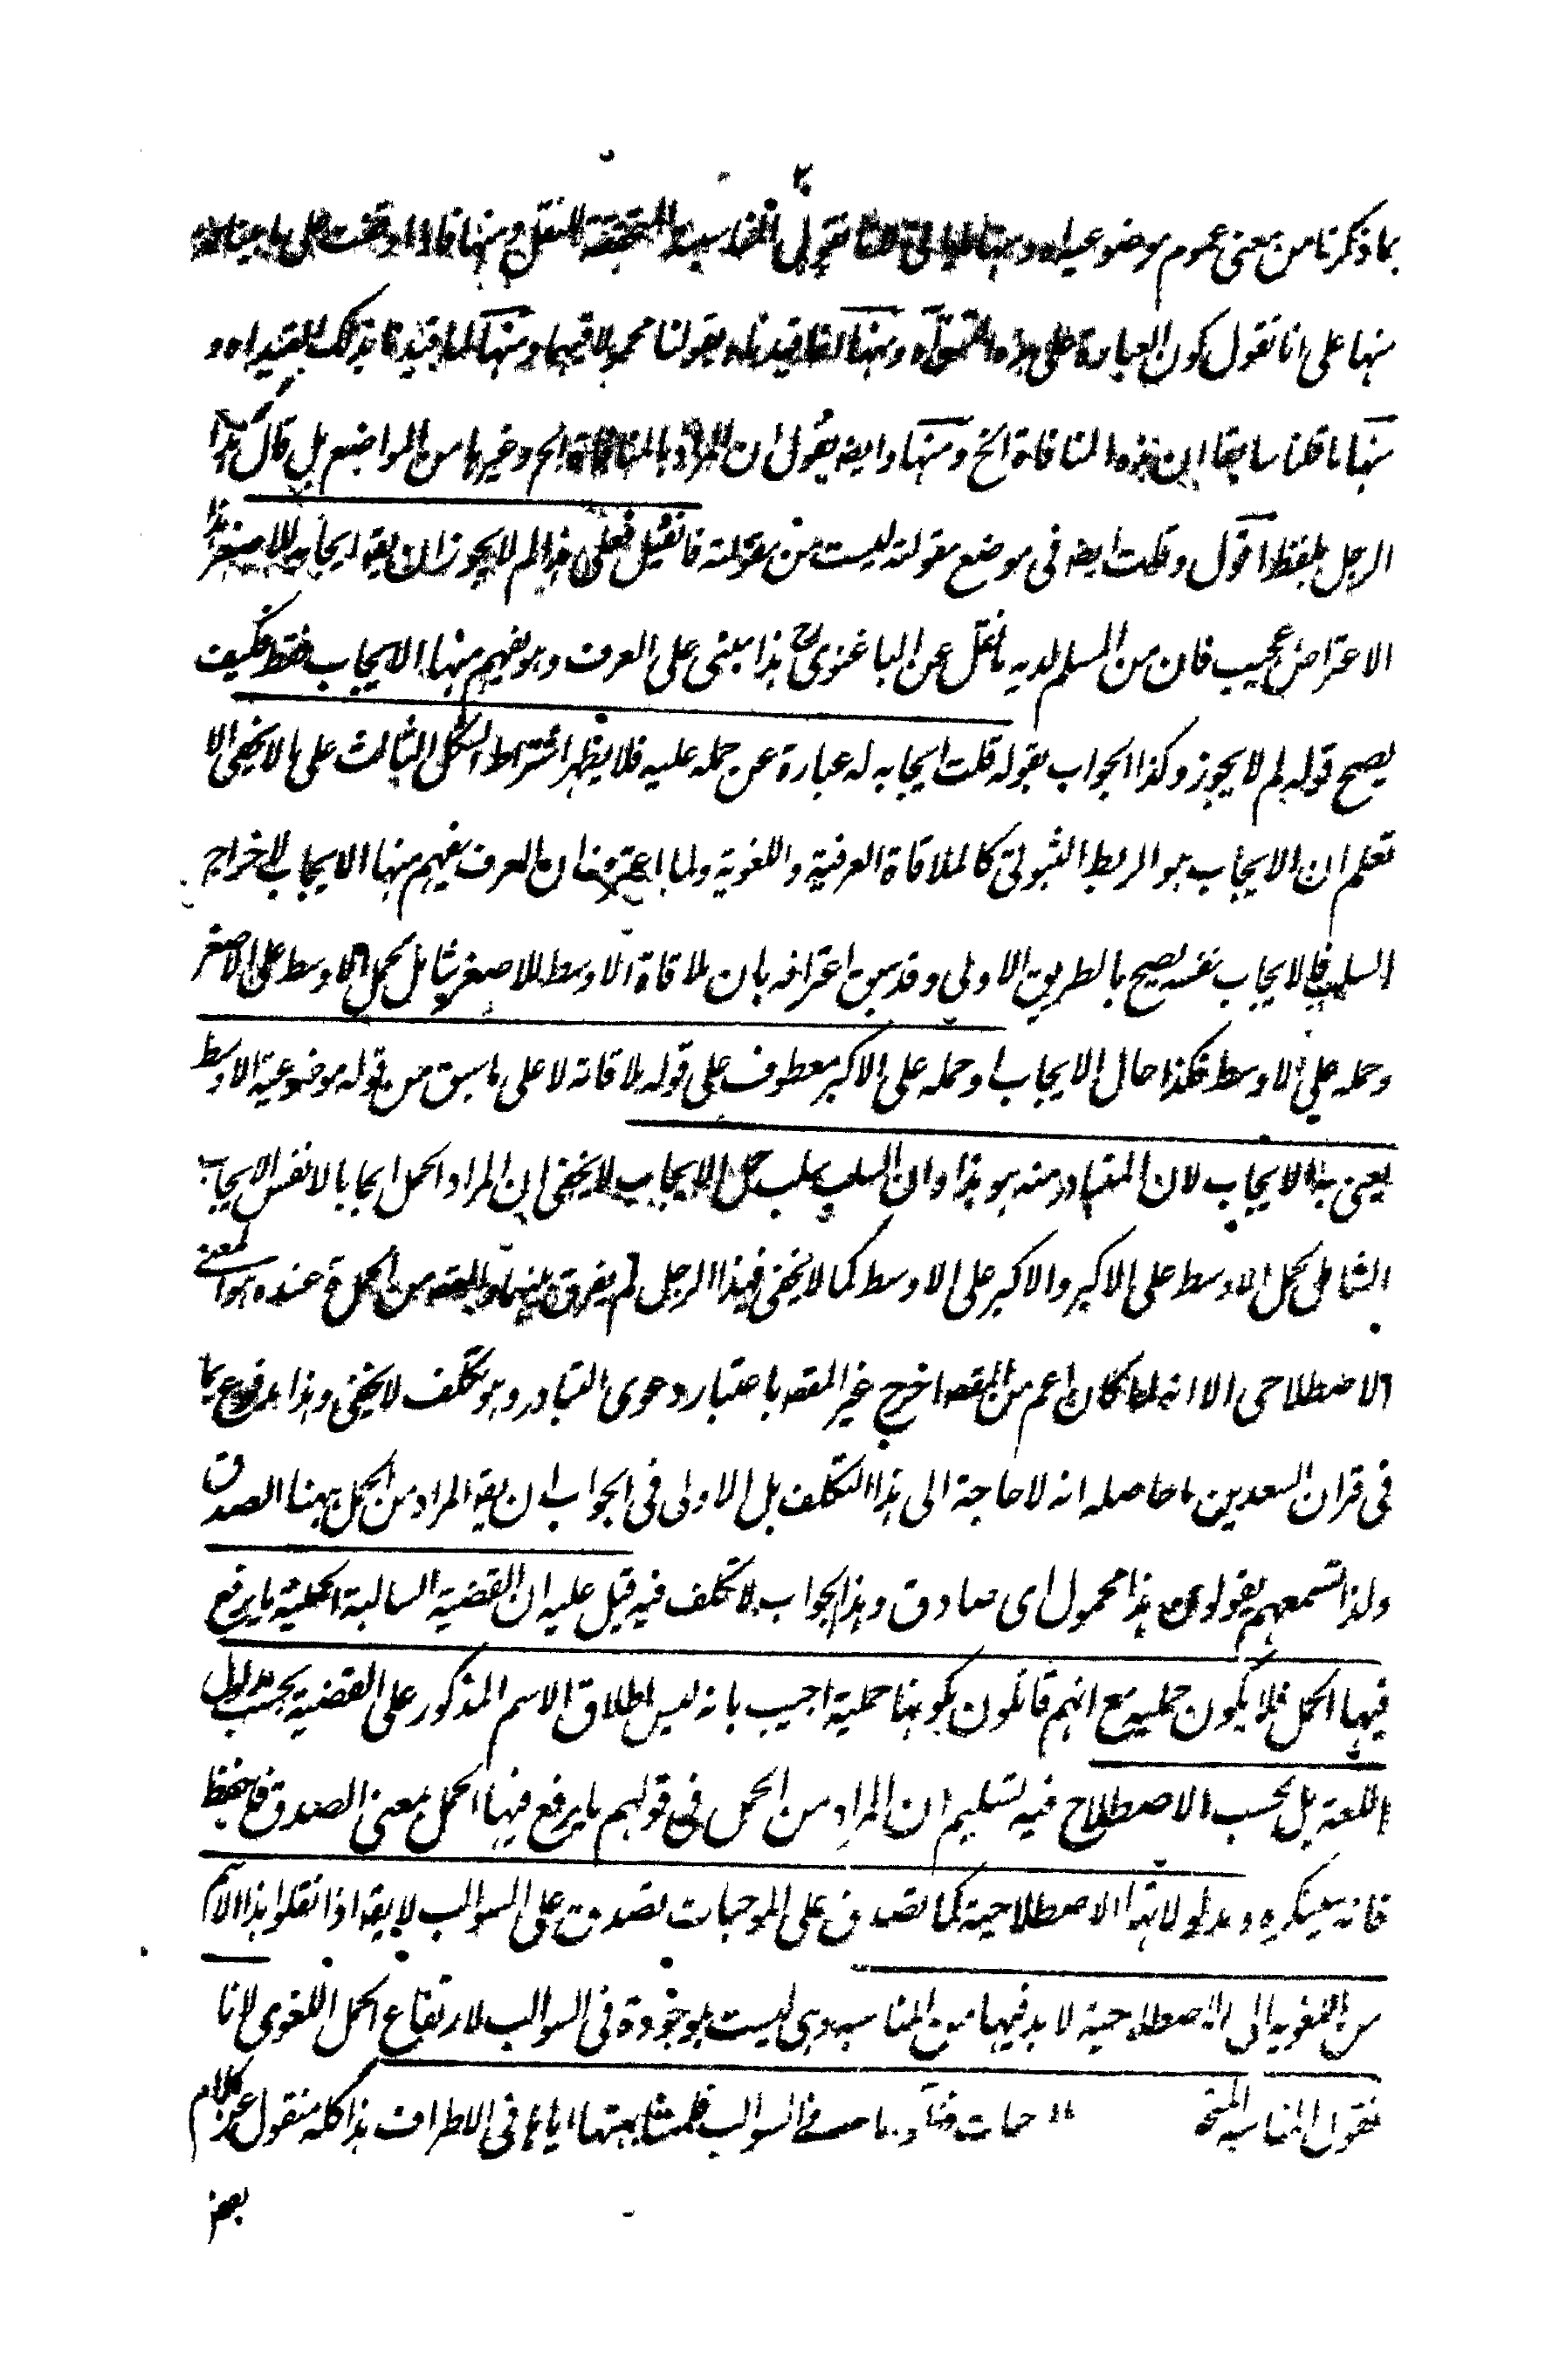 بما ذكرنا من معنى عموم موضوعية اه ومنها
منها على انا نقول كون العبارة على هذه ومنها بقولنا محمولا فيها ومنها بذلك القيد اه و
منها ما قلنا سابقا ان هذه المنافاة الخ ومنها وايضه يقول ان المراد بالمنافاة الخ وغيرها من المواضع بل قال هذا
الرجل بلفظ اقول وقلت ايضه فى موضع مقولة ليست من مقولته فانقيل فعلى هذا لم لا يجوز ان يقه ايجابه للاصغر هذا
الاعتراض عجيب فان من المسلم لديه ما نقل عن الباغنوى هذا مبنى على العرف وهو يفهم منها الايجاب فقط فكيف
يصح قوله لم لا يجوز وكذا الجواب بقوله قلت ايجابه له عبارة عن حمله عليه فلا يظهر اشتراط الشكل الثالث على ما لا يخفى الا
تعلم ان الايجاب هو الربط الثبوتى كالملاقاة العرفية واللغوية ولما اعترف ان العرف يفهم منها الايجاب لاخراج
السلب فالايجاب نفسه يصح بالطريق الاولى وقد سبق اعترافه بان ملاقاة الاوسط للاصغر شامل لحمل الاوسط على الاصغر
وحمله على الاوسط فكذا حال الايجاب او حمله على الاكبر معطوف على قوله ملاقاته لا على ما سبق من قوله موضوعية الاوسط
يعنى هذا الايجاب لان المتبادر منه هو هذا وان السلب سلب حمل الايجاب لا يخفى ان المراد الحمل ايجابا لا نفس الايجاب
الشامل لحمل الاوسط على الاكبر والاكبر على الاوسط كما لا يخفى فهذا الرجل لم يفرق بينهما والمقصه من الحمل عنده هو المعنى
الاصطلاحى الا انه لما كان اعم من المقصه اخرج غير المقصه باعتبار دعوى التبادر وهو تكلف لا يخفى وهذا مدفوع بما
فى قران السعدين ما حاصله انه لا حاجة الى هذا التكلف بل الاولى فى الجواب ان يقه المراد من الحمل ههنا الصدق
ولذا تسمعهم يقولون هذا محمول اى صادق وهذا الجواب لا تكلف فيه قيل عليه ان القضية السالبة الحملية ما يرفع
فيها الحمل فلا يكون حمليه مع انهم قائلون بكونها حملية اجيب بانه ليس اطلاق الاسم المذكور على القضية بحسب مدلول
اللغة بل بحسب الاصطلاح فيه تسليم ان المراد من الحمل فى قولهم ما يرفع فيها الحمل بمعنى الصدق فاحفظ
فانه سينكره ومدلولاتها الاصطلاحية كما تصدق على الموجبات تصدق على السوالب لا يقه اذا نقلوا هذا الاسم
من اللغويه الى الاصطلاحية لا بد فيها من المناسبه وهى ليست بموجودة فى السوالب لارتفاع الحمل اللغوى لانا
نقول المناسبه فى السوالب فلمشابهتها اياها فى الاطراف هذا كله منقول عن كلام
بعض